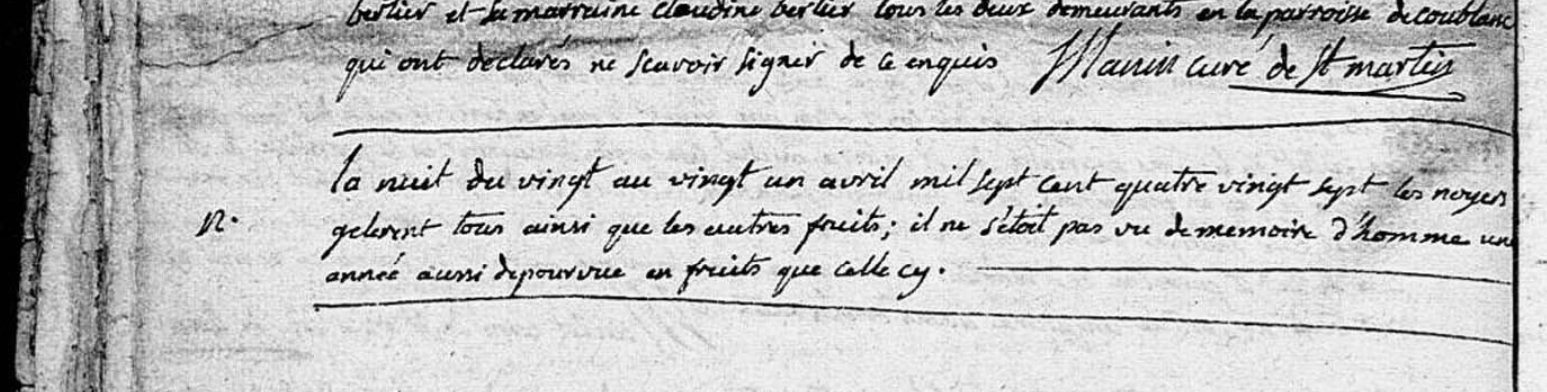 berlier et sa marraine claudine berlier tous les deux demeurants en la parroisse de coublanc
qui ont declarés ne scavoir signer de ce enquis Manin curé de st martin
la nuit du vingt au vingt un avril mil sept cent quatre vingt sept les noyers
N. gelerent tous ainsi que les autres fruits; il ne s'étoit pas vu de memoire d'homme une
année aussi depourvue en fruits que celle cy.